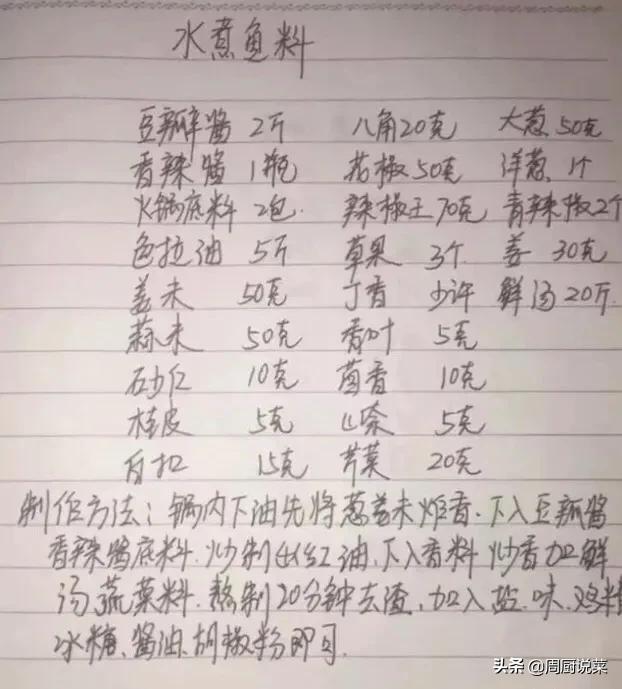 水煮鱼料
豆瓣酱 2斤 八角20克 大葱50克
香辣酱 1瓶 花椒50克 洋葱 1个
火锅底料 2包 辣椒王70克 青辣椒2个
色拉油 5斤 草果 3个 姜 30克
姜末 50克 丁香 少许 鲜汤20斤
蒜末 50克 香叶 5克
砂仁 10克 茴香 10克
桂皮 5克 山奈 5克
白扣 15克 芹菜 20克
制作方法:锅内下油先将葱姜末炸香.下入豆瓣酱
香辣酱底料.炒制出红油.下入香料炒香加鲜
汤蔬菜料.熬制20分钟去渣.加入盐.味.鸡精
冰糖、酱油.胡椒粉即可.
头条 @周厨说菜